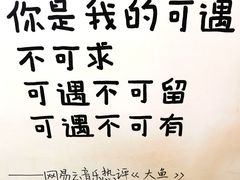 你是我的可遇
不可求
可遇不可留
可遇不可有
——网易云音乐热评《大鱼》